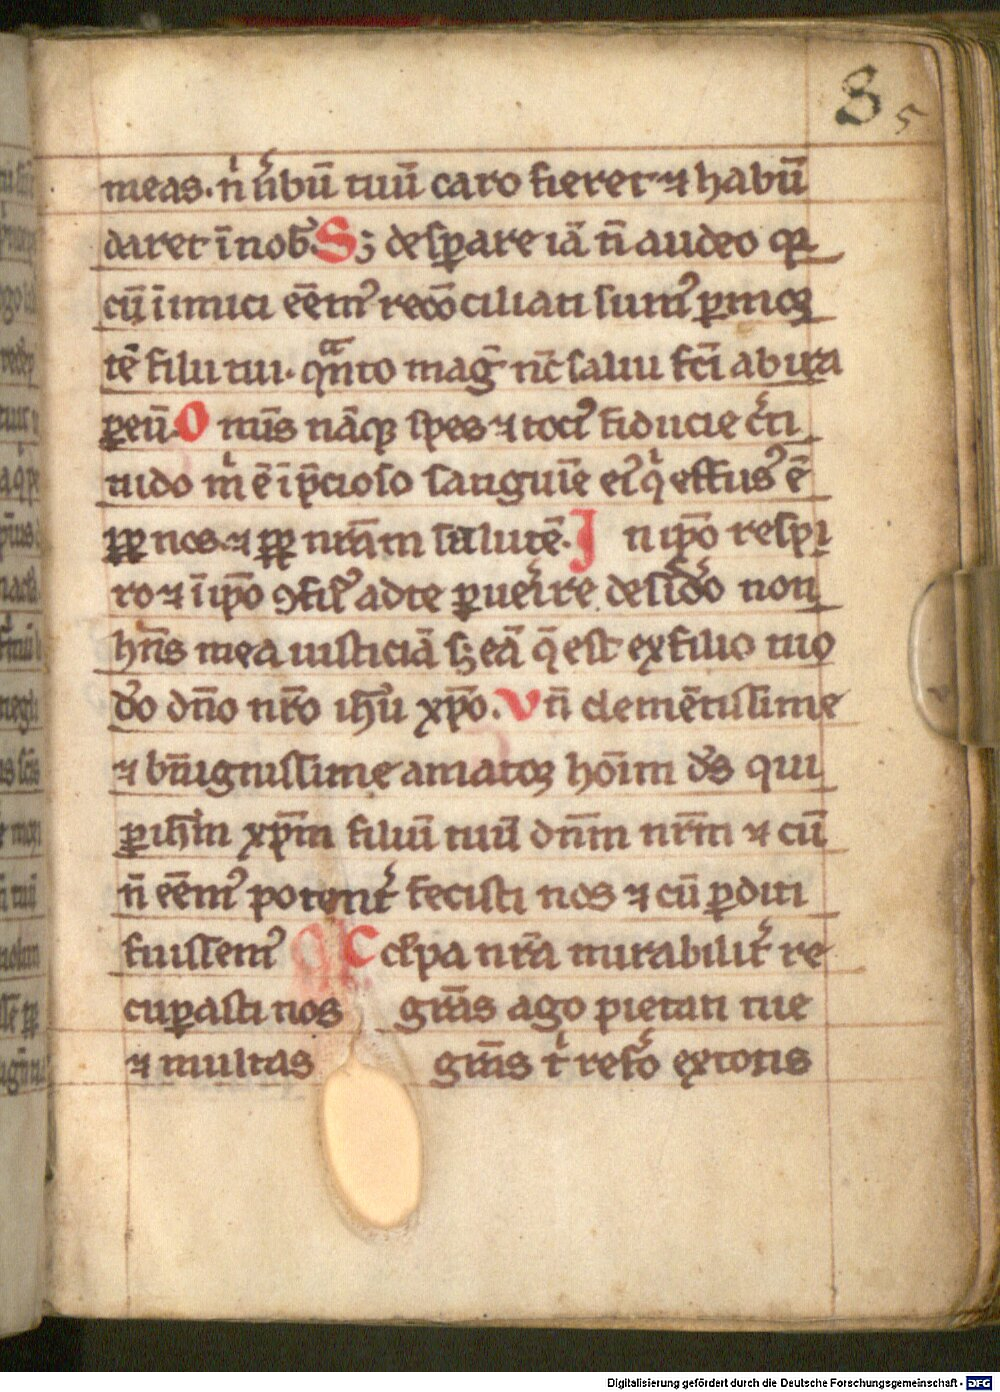 85
meas. n̄ v̄bū tuū caro fieret ⁊ habita
daret ī nob. Sꝫ desꝑare iā n̄ audeo qꝛ
cū inimici eēmꝰ recōciliati sumꝰ ꝑ mor
tē filii tui. qᵃnto magꝭ nc̄ salui fc̄i ab ira
ꝑ eū. Omīs nāqꝫ spes ⁊ tociꝰ fiducie c̄ti
tudo m̄ ē ī p̄cioso sanguīe eiꝰ qͥ effusꝰ ē
ꝓpꝑ nos ⁊ ꝓpꝑ nr̄am salutē. In ip̄o respi
ro ⁊ ī ip̄o ꝯfisꝰ ad te ꝑueīre desid̓o non
hn̄s mea iusticiā sꝫ eā q̄ est ex filio tuo
d̓o dn̄o nr̄o ih̄u xp̄o. Vn̄ clemētissime
⁊ bn̄ignissime amator hoīm d̓s qui
ꝑ ih̄m xp̄m filiū tuū dn̄m nr̄m ⁊ cū
n̄ eēmꝰ potent̓ fecisti nos ⁊ cū ꝑditi
fuissemꝰ cĺpa nr̄a mirabilit̓ re
cuꝑasti nos grās ago pietati tue
⁊ multas grās t̄ ref̓o ex totis
Digitalisierung gefördert durch die Deutsche Forschungsgemeinschaft - DFG